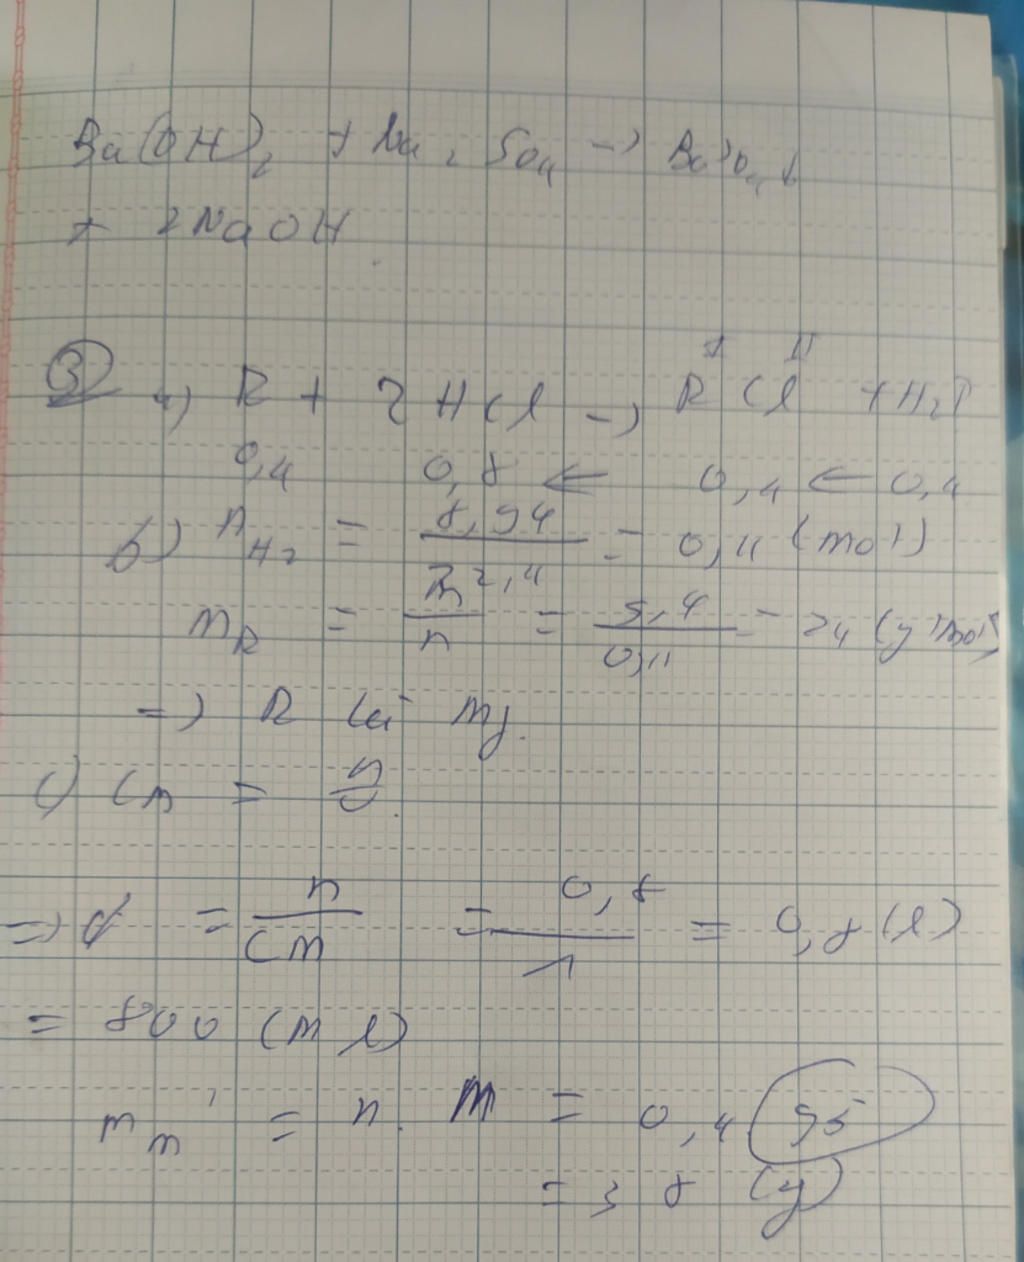 Ba(OH)₂ + Na₂SO₄ → BaSO₄↓
+ 2NaOH
③ a) R + 2HCl → RCl + H₂↑
0,4 0,8 ← 0,4 ← 0,4
b) n H₂ = 8,94 / 22,4 = 0,4 (mol)
M R = m / n = 9,4 / 0,4 = 24 (g/mol)
=) R là Mg.
c) CM = n / v
=) V = n / CM = 0,8 / 1 = 0,8 (l)
= 800 (ml)
= n. M = 0,4 95
= 38 (g)